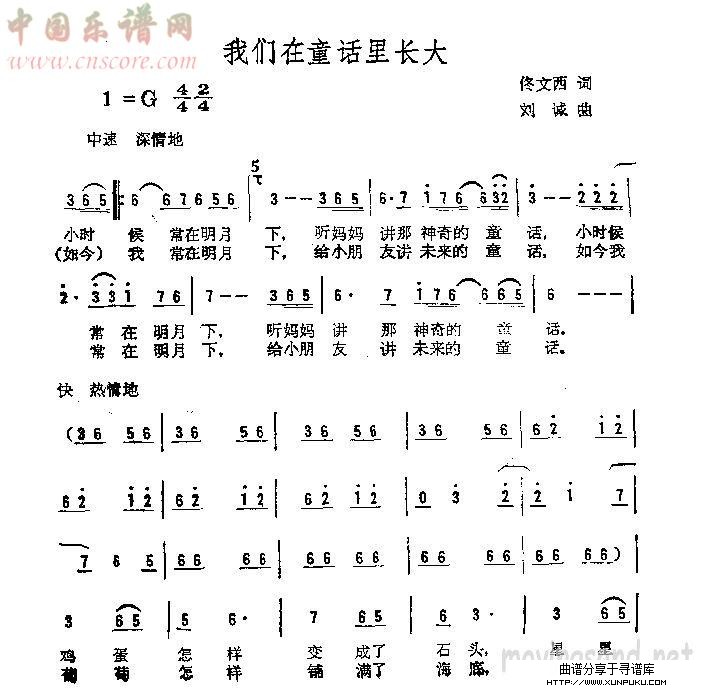 中国乐谱网
www.cnscore.com
我们在童话里长大
1=G 4/4 2/4
佟文西 词
刘诚 曲
中速 深情地
5
3 6 5 6 6 7 6 5 6 3 - - 3 6 5 6 · 7 1 7 6 6 3 2 3 - - 2 2 2
小时 候 常在明月 下, 听妈妈 讲那 神奇的 童 话, 小时候
(如今) 我 常在明月 下, 给小朋 友讲 未来的 童 话, 如今我
2 · 3 3 1 7 6 7 - - 3 6 5 6 · 7 1 7 6 6 5 6 5 6 - -
常 在 明月 下, 听妈妈 讲 那 神奇的 童 话。
常 在 明月 下, 给小朋 友 讲 未来的 童 话。
快 热情地
(3 6 5 6 3 6 5 6 3 6 5 6 3 6 5 6 3 6 5 6 6 2 1 2
6 2 1 2 6 2 1 2 6 2 1 2 0 3 2 2 1 7
7 6 5 6 6 6 6 6 6 6 6 6 6 6 6 6 6)
3 6 5 5 6 · 7 6 5 6 3 · 3 6 5
鸡 蛋 怎 样 变 成了 石 头, 星 星
葡 萄 怎 样 铺 满了 海 底,
曲谱分享于寻谱库
WWW.XUNPUKU.COM